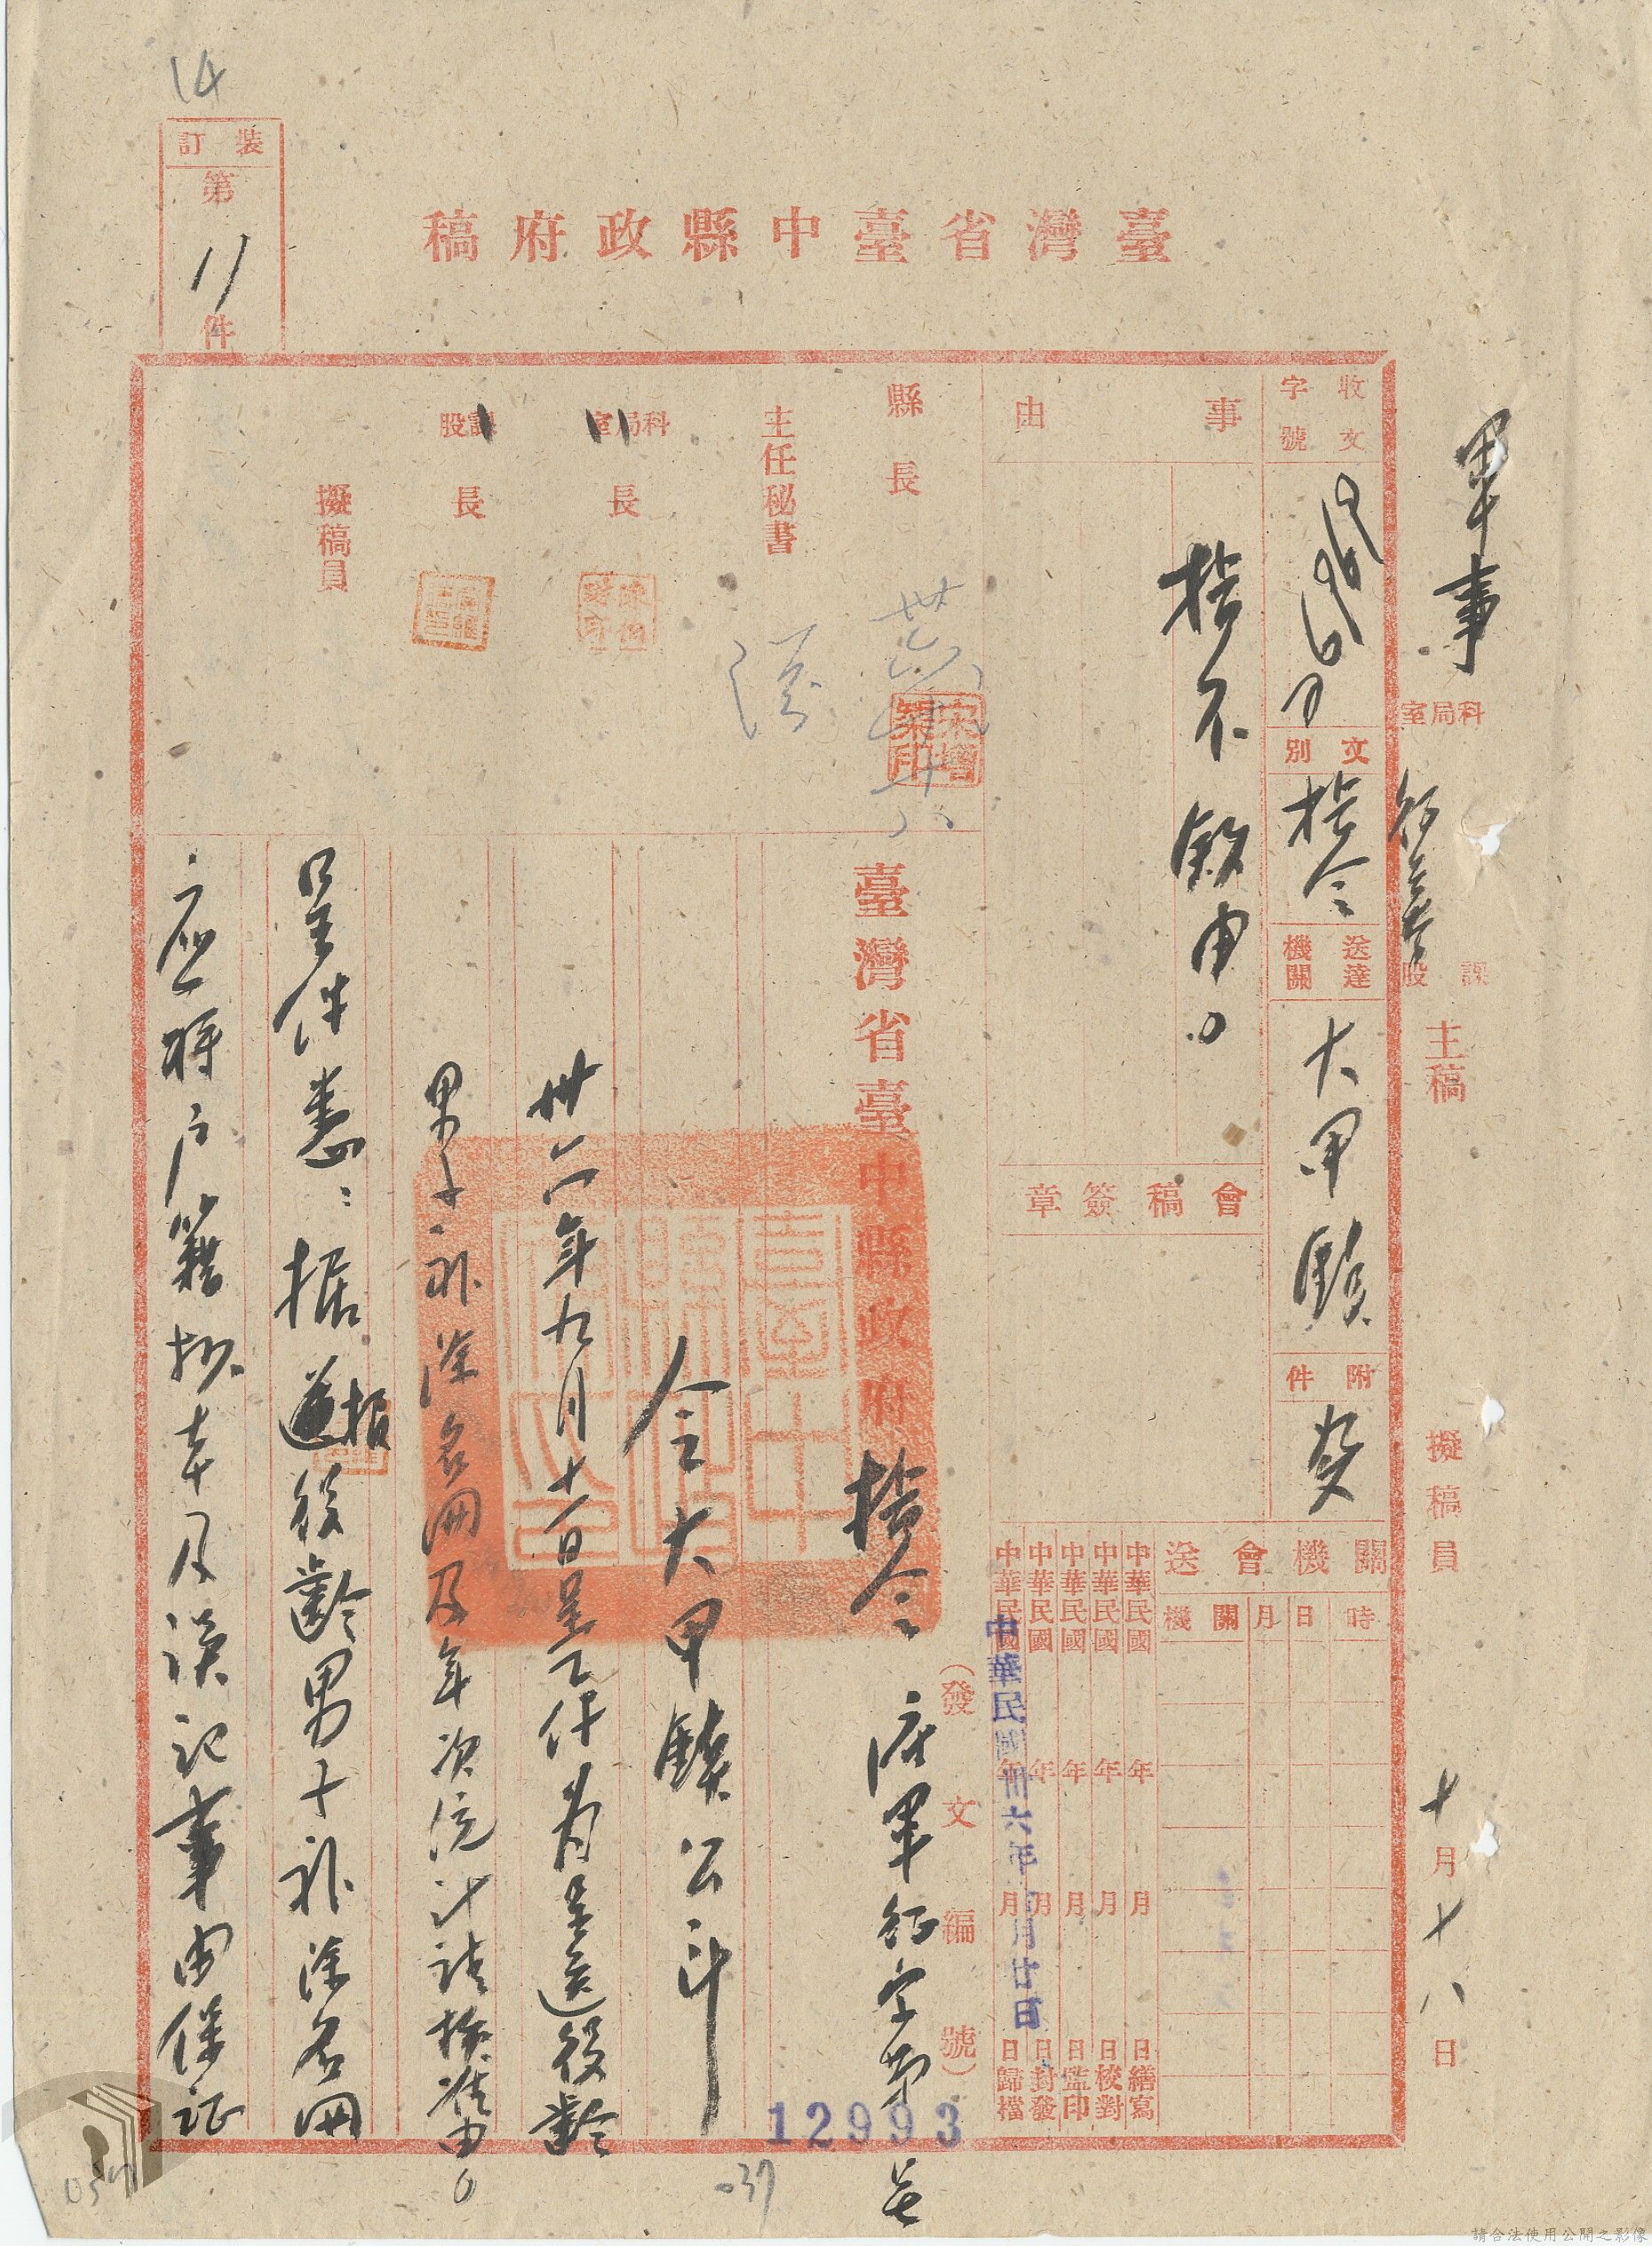 14
裝訂
第
11
件
臺灣省臺中縣政府稿
軍事
科局室
課股
主稿
擬稿員
十月十八日
收文
字號
文別
指令
送達機關
大甲鎮
附件
事由
指示飭由。
會稿簽章
關機會送
時
日
月
關機
中華民國 年 月 日繕寫
中華民國 年 月 日校對
中華民國 年 月 日監印
中華民國 年 月 日封發
中華民國 年 月 日歸檔
中華民國卅六年 月廿日
縣長
主任秘書
科局室長
課股長
擬稿員
臺灣省臺中縣政府
指令
(發文編號)
府軍征字第 號
12993
令大甲鎮公所
卅六年九月十一日呈乙件為呈送役齡
男子補除名冊及年次統計請核准由。
呈件悉:据報役齡男子補除名冊
應將戶籍抄本及誤記事由保証
037
請合法使用公開之影像